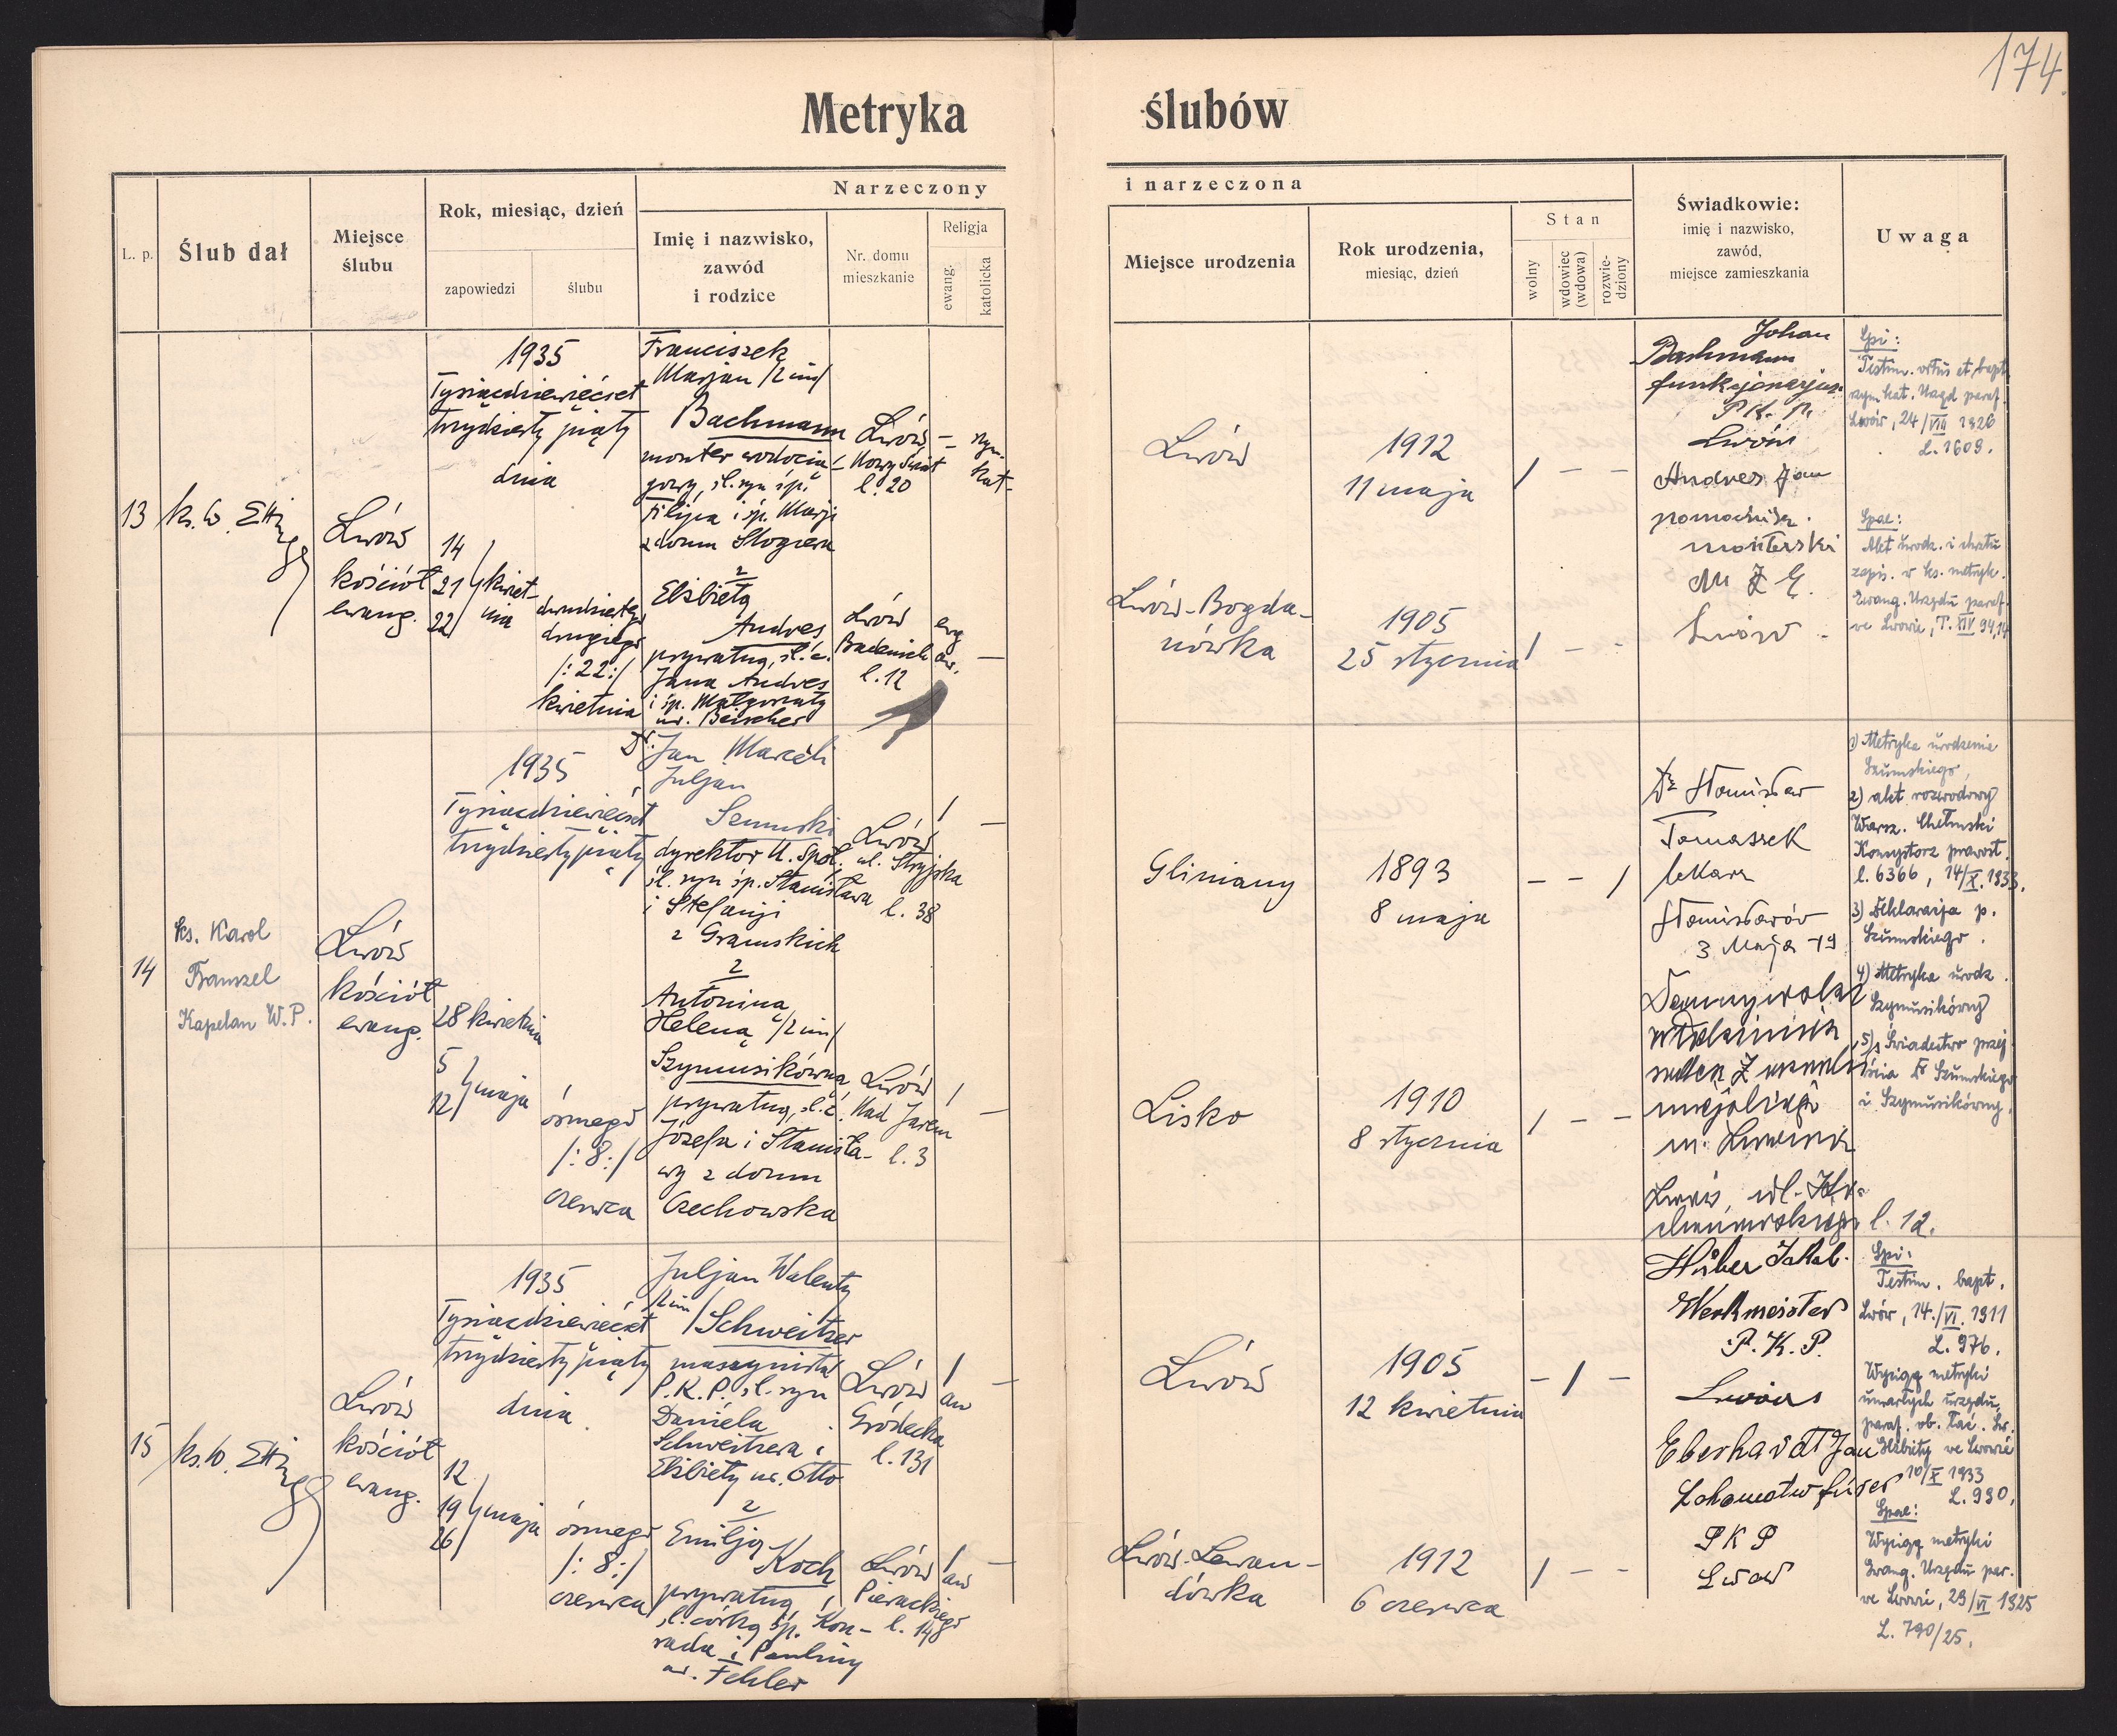 174.
Metryka ślubów
L. p.
Ślub dał
Miejsce
ślubu
Rok, miesiąc, dzień
zapowiedzi
ślubu
Narzeczony
Imię i nazwisko,
zawód
i rodzice
Nr. domu
mieszkanie
Religja
ewang.
katolicka
i narzeczona
Miejsce urodzenia
Rok urodzenia,
miesiąc, dzień
Stan
wolny
wdowiec
(wdowa)
rozwie-
dziony
Świadkowie:
imię i nazwisko,
zawód,
miejsce zamieszkania
Uwaga
13
ks. W. Ettinger
Lwów
kościół
ewang.
1935
Tysiącdziewięćset
trzydziesty piąty
dnia
14
21
22
kwiet-
nia
dwudziestego
drugiego
/:22:/
kwietnia
Franciszek
Marjan /2 im/
Bachmann
monter wodocią-
gowy, śl. syn śp.
Filipa i śp. Marji
z domu Stogrera
z
Elżbietą
Andres
prywatną, śl. c.
Jana Andres
i śp. Małgorzaty
ur. Beischer
Lwów
Nowy Świat
l. 20
rzym.
kat.
Lwów
Badenich
l. 12
ewg
aw. —
Lwów
1912
11 maja
/ — —
Lwów-Bogda-
nówka
1905
25 stycznia
/ — —
Johan
Bachmann
funkcjonarjusz
P.K.P.
Lwów
Andres Jan
pomocnik
monterski
M Z E.
Lwów
Spi:
Testim. ortus et bapt.
rzym. kat. Urząd paraf.
Lwów, 24/VIII 1926
L. 1609.
Spae:
Akt urodz. i chrztu
zapis. w ks. metryk.
Ewang. Urzędu paraf.
we Lwowie, T. XIV 94,14
14
ks. Karol
Franzel
Kapelan W.P.
Lwów
kościół
ewang.
1935
Tysiącdziewięćset
trzydziesty piąty
28 kwietnia
5
12
maja
ósmego
/:8:/
czerwca
Dr. Jan Marceli
Juljan
Szumski
dyrektor U. Społ.
śl. syn śp. Stanisława
i Stefanji
z Gramskich
z
Antoniną
Heleną /2 im/
Szymusikówną
prywatną, śl. c.
Józefa i Stanisła-
wy z domu
Czechowska
Lwów
ul. Stryjska
l. 38
/ —
Lwów
Nad Jarem
l. 3
/ —
Gliniany
1893
8 maja
— — /
Lisko
1910
8 stycznia
/ — —
Dr Stanisław
Tomaszek
lekarz
Stanisławów
3 Maja 19
m. Lwowa
Lwów, ul.
l. 12.
1) Metryka urodzenia
Szumskiego,
2) akt rozwodowy
Warsz. Chełmski
Konsystorz prawosł.
l. 6366, 14/X. 1933.
3) Deklaracja p.
Szumskiego.
4) Metryka urodz.
Szymusikówny
5) Świadectwo przej-
ścia Dr Szumskiego
i Szymusikówny.
15
ks. W. Ettinger
Lwów
kościół
ewang.
1935
Tysiącdziewięćset
trzydziesty piąty
dnia
12
19
26
maja
ósmego
/:8:/
czerwca
Juljan Walenty
/2 im/ Schweitzer
maszynista
P.K.P. śl. syn
Daniela
Schweitzera i
Elżbiety ur. Otto
z
Emilją
Koch
prywatną,
śl. córką śp. Kon-
rada i Pauliny
ur. Fehler
Lwów
Gródecka
l. 131
/ —
aw
Lwów
Pierackiego
l. 148
/ —
aw
Lwów
1905
12 kwietnia
— / —
Lwów-Lewan-
dówka
1912
6 czerwca
/ — —
Huber Jakob.
Werkmeister
P.K.P.
Lwów
Eberhardt Jan
Lokomotwfürer
PKP
Lwow
Spi:
Testim. bapt.
Lwów, 14./VI. 1911
L. 976.
Wyciąg metryki
umarłych urzędu,
paraf. ob. łac. św.
Elżbiety we Lwowie
10/X 1933
L. 930.
Spae:
Wyciąg metryki
Ewang. Urzędu par.
we Lwowie, 29/VI 1925
L. 790/25.